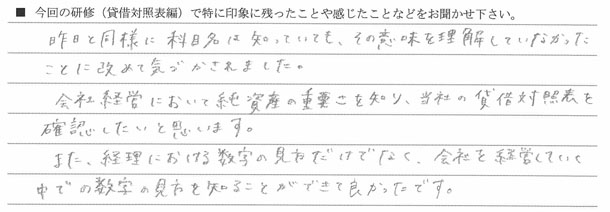 ■ 今回の研修（貸借対照表編）で特に印象に残ったことや感じたことなどをお聞かせ下さい。
昨日と同様に科目名は知っていても、その意味を理解していなかった
ことに改めて気づかされました。
会社経営において純資産の重要さを知り、当社の貸借対照表を
確認したいと思います。
また、経理における数字の見方だけでなく、会社を経営していく
中での数字の見方を知ることができて良かったです。